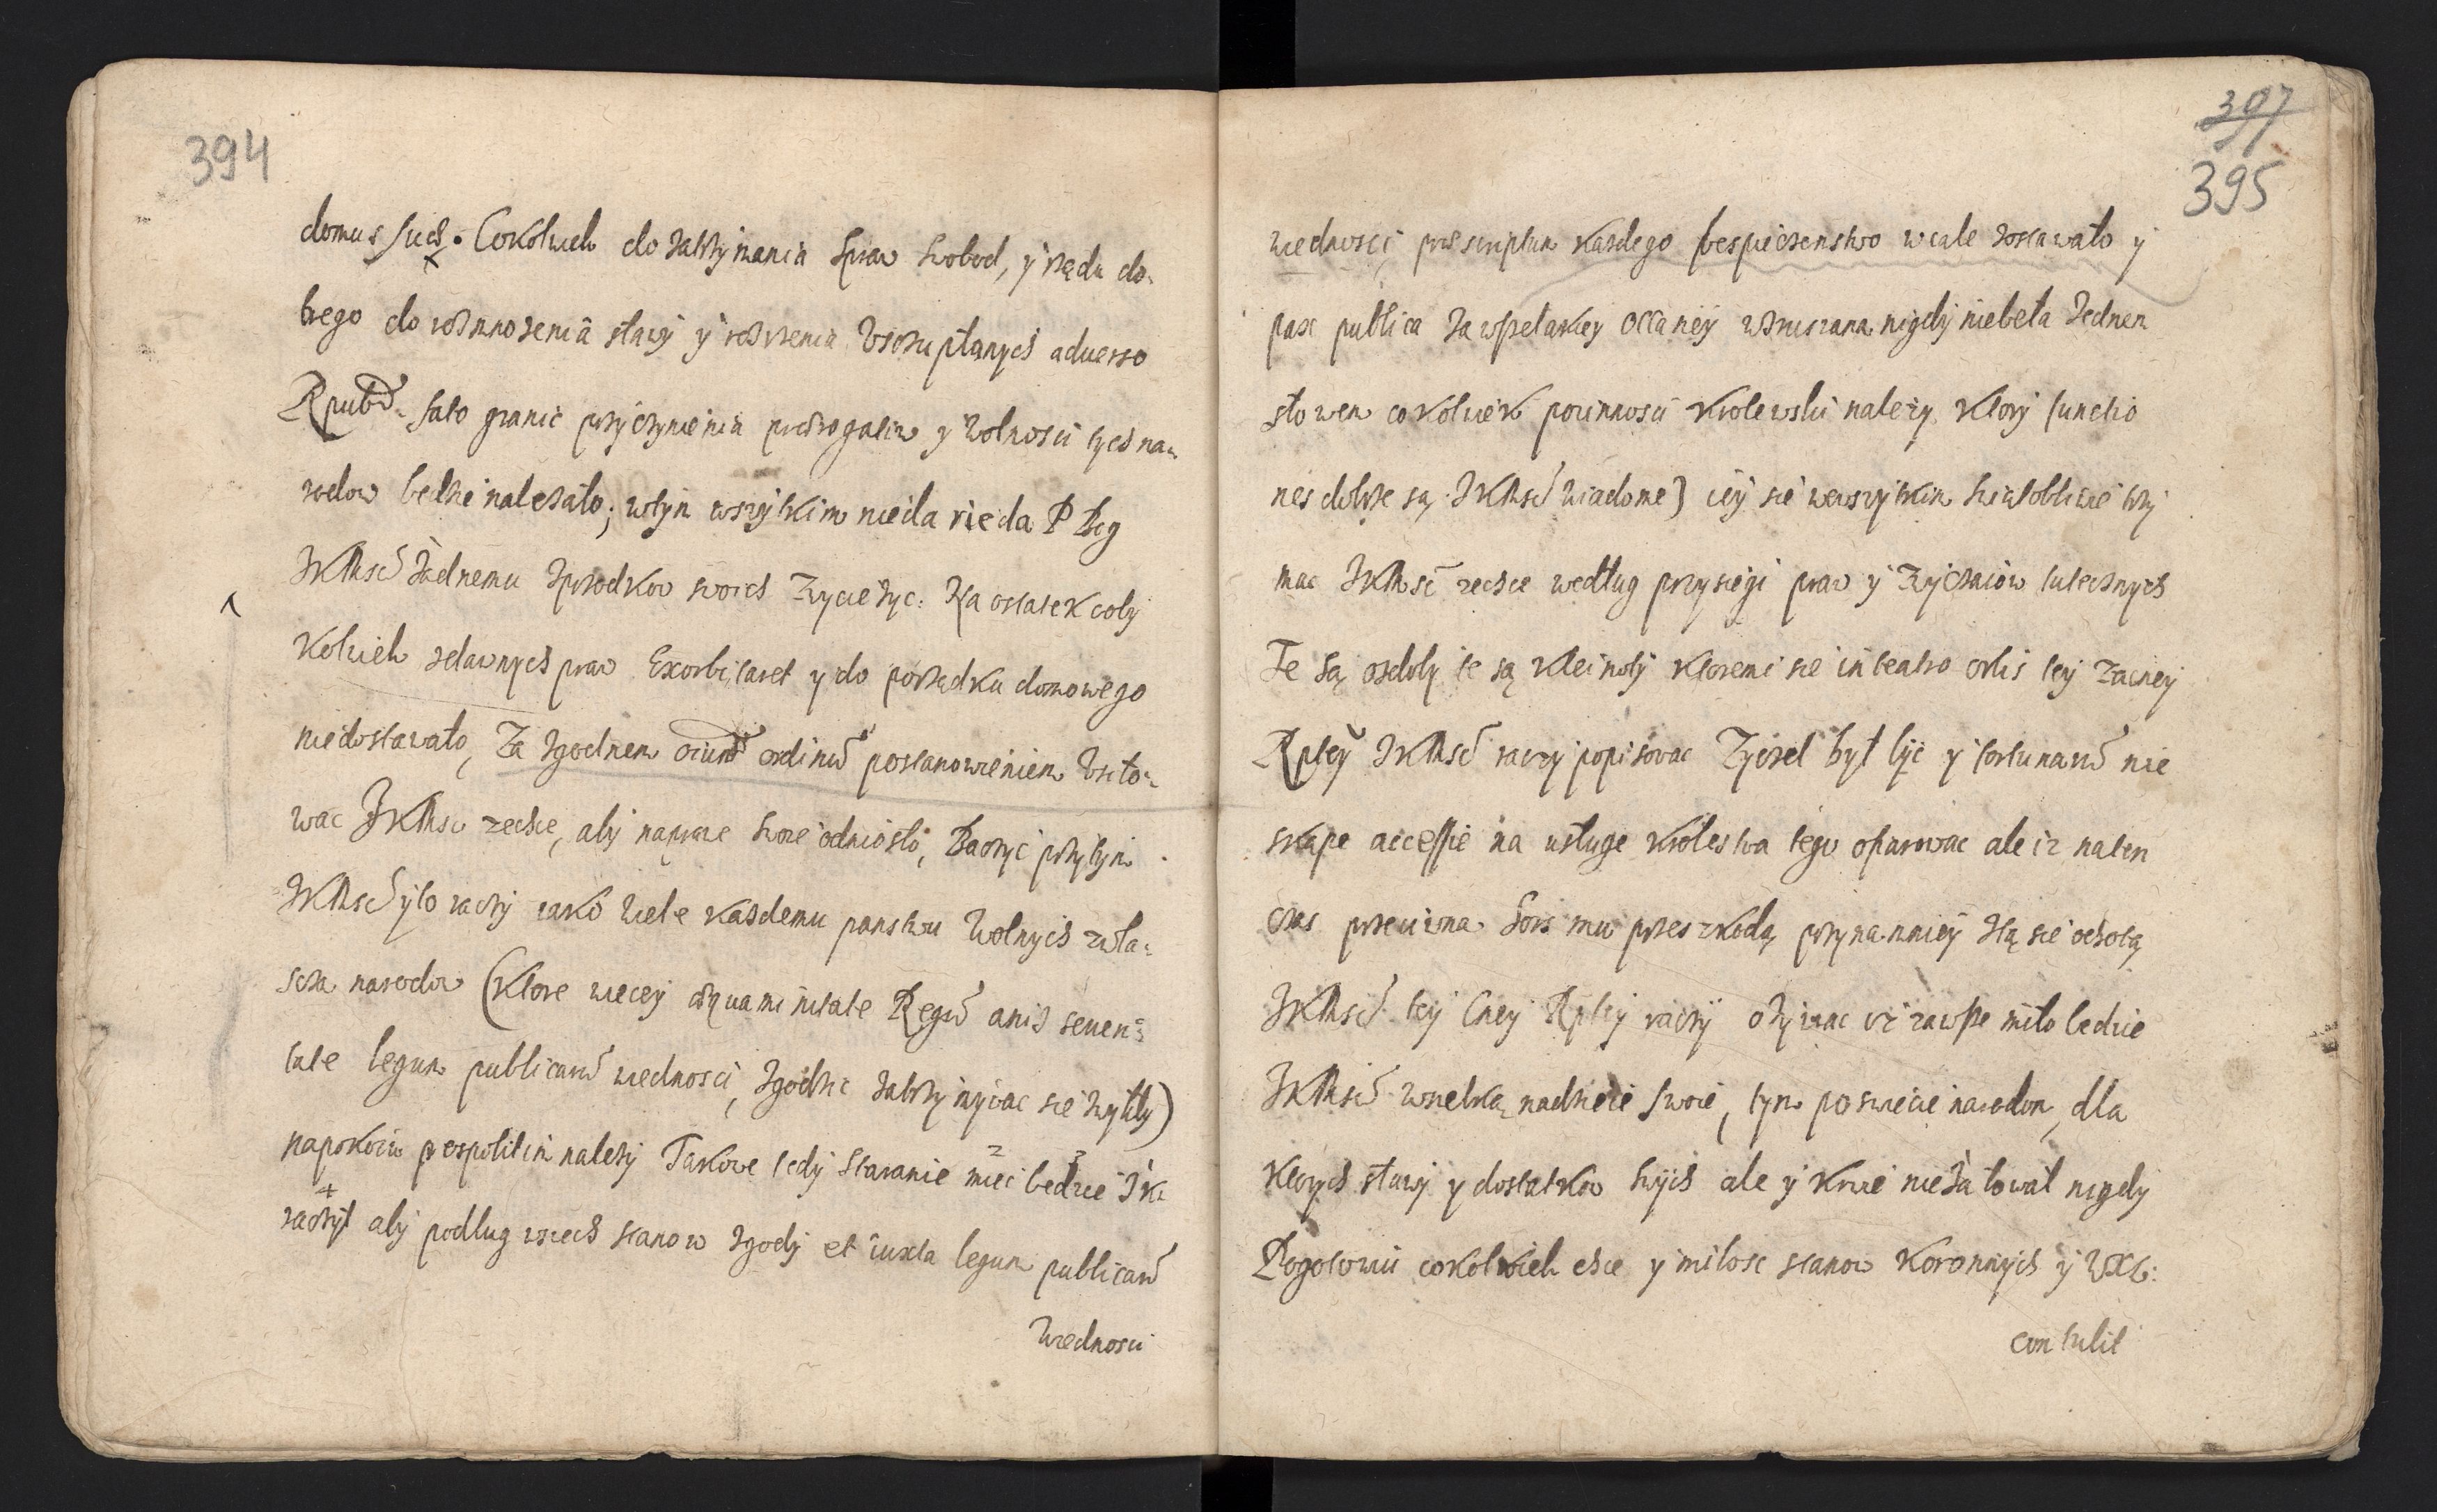 394
domus sue. Cokolwiek do zatrzymania spraw swobod, y rządu do-
brego do rozmnozenia sławy y rozszerzenia uszczuplanych adverso
Reipub. fato granic przyczynienia praerogatiw y wolnosci tych na-
rodow bedzie nalezało; w tym wszytkim nieda nieda P Bog
JKMsci zadnemu z przodkow swoich zwyciezyc. Na ostatek coby
kolwiek z dawnych praw exorbitaret y do porządku domowego
niedostawało, za zgodnem oium ordinum postanowieniem usiło-
wac JKMsc zechce, aby naprawe swoie odniosło, baczyc przytym
JKMsc yto raczy iako wiele kazdemu panstwu wolnych zwła-
scza narodow (ktore wiecey aequanimitate Regum aniz seueri-
tate legum publicarum wiednosci, zgodzie zatrzymywac sie zwykły)
napokoiu pospolitim nalezy Takowe tedy staranie miec bedzie JK
raczył aby podlug wszech stanow zgody et iuxta legum publicarum
Wiednosci
397
395
wiednosci praescriptum kazdego bespieczenstwo wcale zostawało y
pax publica za wszelakiey occaniey wzruszana nigdy niebeła Jednem
słowem cokolwiek powinnosci krolewskii nalezy ktory functio
nes dobrze są JKMsci wiadome) iey sie wewszytkim swiatobliwie trzy
mac JKMsc zechce według przysiegi praw y zwyczaiow tutecznych
Te są ozdoby te są kleinoty ktoremi sie in teatro orbis tey zacney
Rptey JKMsc raczy popisowac Zyczeł był byc y fortunarum nie
skąpe accessie na usługe krolestwa tego ofiarowac ale iz naten
czas przeciwna sors mu przeszkodą przynamniey tą sie ochotą
JKMsc tey sney Rptey raczy ozywac iz zawsze miło bedzie
JKMsci wszelką nadzieie swoie, tym poswiecie narodom, dla
ktorych sławy y dostatkow swych ale y krwie nieżałował nigdy
Pogotowiu cokolwiek chce y miłosc stanow Koronnych y WXL:
contulit